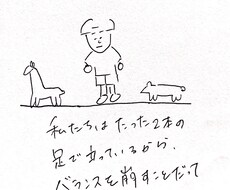 私たちはたった2本の
足で立っているから、
バランスを崩すことだって